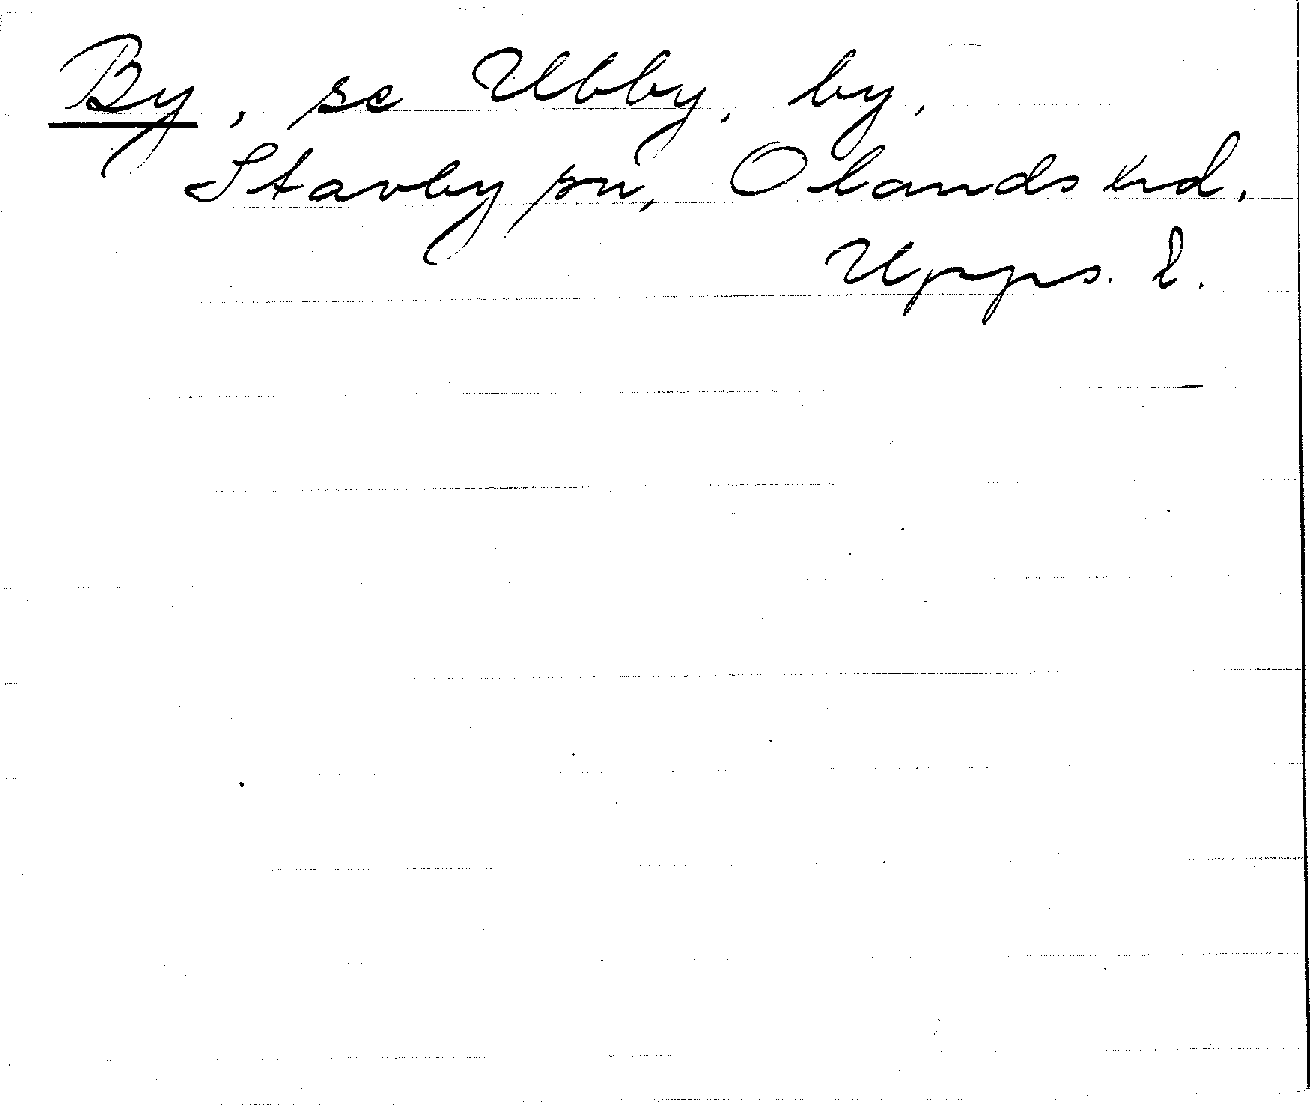 By, se Ubby, by,
Stavby sn, Olands hd.
Upps. l.